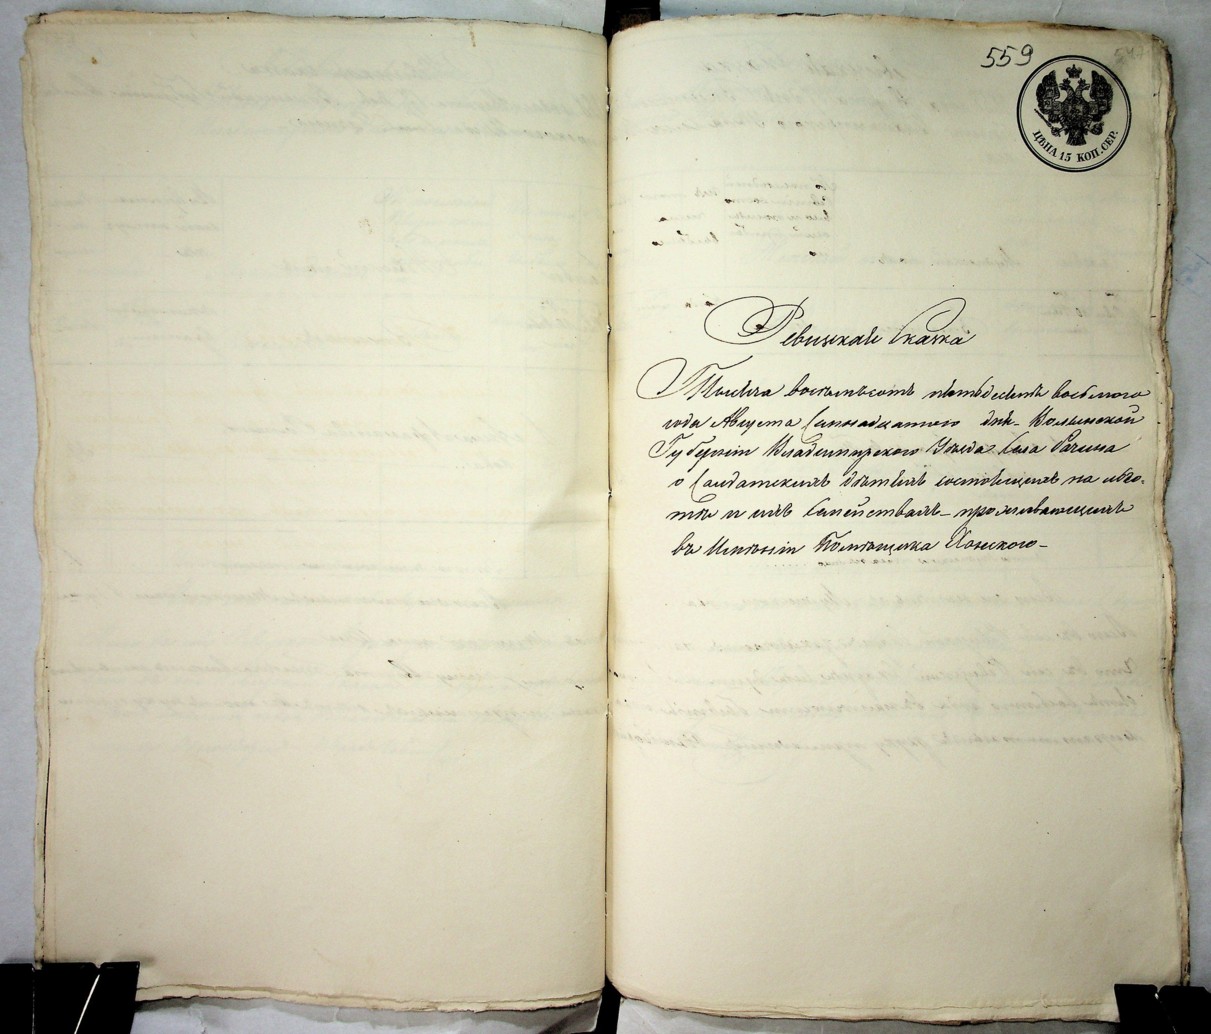 559
ЦѢНА 15 КОП. СЕР.
Ревизская Сказка
Тысяча восемьсотъ пятьдесятъ восьмого
года Августа Семнадцатого дня Волынской
Губерніи Владимирского Уѣзда Села Рачина
о Салдатскихъ дѣтяхъ состоящихъ на льго-
тѣ и ихъ Семействахъ проживающихъ
въ Имѣніи Помѣщика